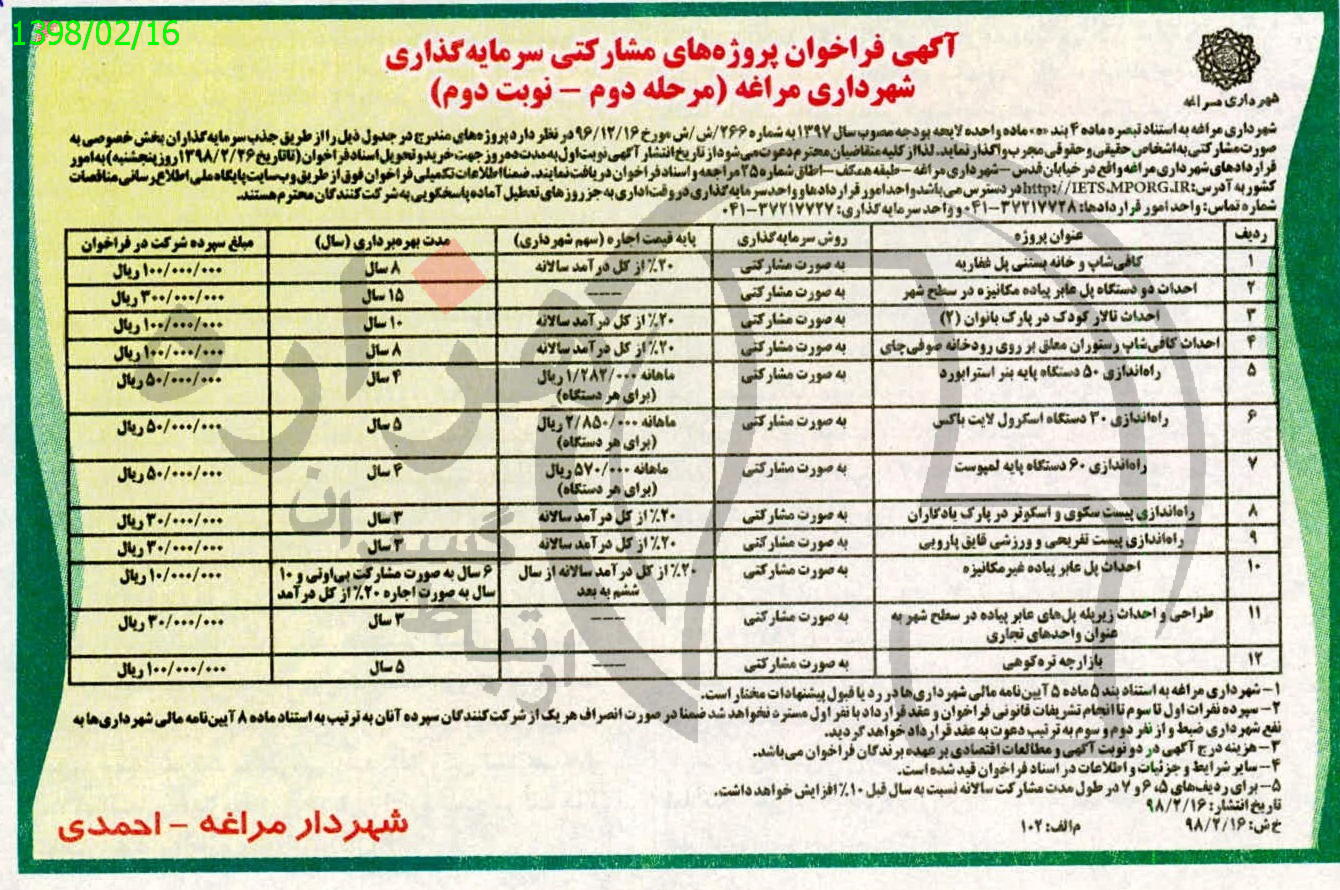 1398/02/16
آگهی فراخوان پروژه‌های مشارکتی سرمایه‌گذاری
شهرداری مراغه (مرحله دوم – نوبت دوم)
شهرداری مراغه
شهرداری مراغه به استناد تبصره ماده ۴ بند «ه» ماده واحده لایحه بودجه مصوب سال ۱۳۹۷ به شماره ۲۶۶/ش/ش مورخ ۹۶/۱۲/۱۶ در نظر دارد پروژه‌های مندرج در جدول ذیل را از طریق جذب سرمایه‌گذاران بخش خصوصی به
صورت مشارکتی به اشخاص حقیقی و حقوقی مجرب واگذار نماید. لذا از کلیه متقاضیان محترم دعوت می‌شود از تاریخ انتشار آگهی نوبت اول به مدت ده روز جهت خرید و تحویل اسناد فراخوان (تا تاریخ ۱۳۹۸/۲/۲۶ روز پنجشنبه) به امور
قراردادهای شهرداری مراغه واقع در خیابان قدس – شهرداری مراغه – طبقه همکف – اطاق شماره ۲۵ مراجعه و اسناد فراخوان دریافت نمایند. ضمنا اطلاعات تکمیلی فراخوان فوق از طریق وب‌سایت پایگاه ملی اطلاع‌رسانی مناقصات
کشور به آدرس: http://IETS.MPORG.IR در دسترس می‌باشد واحد امور قراردادها و واحد سرمایه‌گذاری در وقت اداری به جز روزهای تعطیل آماده پاسخگویی به شرکت‌کنندگان محترم هستند.
شماره تماس: واحد امور قراردادها: ۳۷۲۱۷۷۲۸–۰۴۱ و واحد سرمایه‌گذاری: ۳۷۲۱۷۷۲۷–۰۴۱
ردیف عنوان پروژه روش سرمایه‌گذاری پایه قیمت اجاره (سهم شهرداری) مدت بهره‌برداری (سال) مبلغ سپرده شرکت در فراخوان
۱ کافی‌شاپ و خانه بستنی پل غفاریه به صورت مشارکتی ۲۰٪ از کل درآمد سالانه ۸ سال ۱۰۰/۰۰۰/۰۰۰ ریال
۲ احداث دو دستگاه پل عابر پیاده مکانیزه در سطح شهر به صورت مشارکتی ---- ۱۵ سال ۳۰۰/۰۰۰/۰۰۰ ریال
۳ احداث تالار کودک در پارک بانوان (۲) به صورت مشارکتی ۲۰٪ از کل درآمد سالانه ۱۰ سال ۱۰۰/۰۰۰/۰۰۰ ریال
۴ احداث کافی‌شاپ رستوران معلق بر روی رودخانه صوفی‌چای به صورت مشارکتی ۲۰٪ از کل درآمد سالانه ۸ سال ۱۰۰/۰۰۰/۰۰۰ ریال
۵ راه‌اندازی ۵۰ دستگاه پایه بنر استرابورد به صورت مشارکتی ماهانه ۱/۲۸۲/۰۰۰ ریال ۴ سال ۵۰/۰۰۰/۰۰۰ ریال
(برای هر دستگاه)
۶ راه‌اندازی ۳۰ دستگاه اسکرول لایت باکس به صورت مشارکتی ماهانه ۲/۸۵۰/۰۰۰ ریال ۵ سال ۵۰/۰۰۰/۰۰۰ ریال
(برای هر دستگاه)
۷ راه‌اندازی ۶۰ دستگاه پایه لمپوست به صورت مشارکتی ماهانه ۵۷۰/۰۰۰ ریال ۴ سال ۵۰/۰۰۰/۰۰۰ ریال
(برای هر دستگاه)
۸ راه‌اندازی پیست سکوی و اسکوتر در پارک یادگاران به صورت مشارکتی ۲۰٪ از کل درآمد سالانه ۳ سال ۳۰/۰۰۰/۰۰۰ ریال
۹ راه‌اندازی پیست تفریحی و ورزشی قایق پارویی به صورت مشارکتی ۲۰٪ از کل درآمد سالانه ۳ سال ۳۰/۰۰۰/۰۰۰ ریال
۱۰ احداث پل عابر پیاده غیرمکانیزه به صورت مشارکتی ۲۰٪ از کل درآمد سالانه از سال ۶ سال به صورت مشارکت بی‌اوتی و ۱۰ ۱۰/۰۰۰/۰۰۰ ریال
ششم به بعد سال به صورت اجاره ۲۰٪ از کل درآمد
۱۱ طراحی و احداث زیرپله پل‌های عابر پیاده در سطح شهر به به صورت مشارکتی ---- ۳ سال ۳۰/۰۰۰/۰۰۰ ریال
عنوان واحدهای تجاری
۱۲ بازارچه تره‌کوهی به صورت مشارکتی ---- ۵ سال ۱۰۰/۰۰۰/۰۰۰ ریال
۱– شهرداری مراغه به استناد بند ۵ ماده ۵ آیین‌نامه مالی شهرداری‌ها در رد یا قبول پیشنهادات مختار است.
۲– سپرده نفرات اول تا سوم تا انجام تشریفات قانونی فراخوان و عقد قرارداد با نفر اول مسترد نخواهد شد ضمنا در صورت انصراف هر یک از شرکت‌کنندگان سپرده آنان به ترتیب به استناد ماده ۸ آیین‌نامه مالی شهرداری‌ها به
نفع شهرداری ضبط و از نفر دوم و سوم به ترتیب دعوت به عقد قرارداد خواهد گردید.
۳– هزینه درج آگهی در دو نوبت آگهی و مطالعات اقتصادی بر عهده برندگان فراخوان می‌باشد.
۴– سایر شرایط و جزئیات و اطلاعات در اسناد فراخوان قید شده است.
۵– برای ردیف‌های ۵، ۶ و ۷ در طول مدت مشارکت سالانه نسبت به سال قبل ۱۰٪ افزایش خواهد داشت.
تاریخ انتشار: ۹۸/۲/۱۶
خ ش: ۹۸/۲/۱۶ م الف: ۱۰۲
شهردار مراغه – احمدی